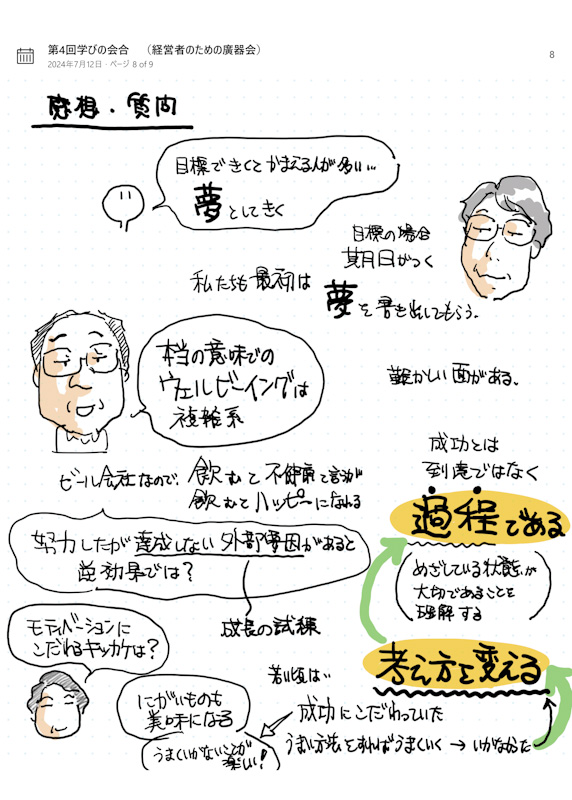 第4回学びの会合 （経営者のための廣器会）
2024年7月12日・ページ 8 of 9
8
感想・質問
目標できくとかまえる人が多い…
夢としてきく
目標の場合
期日がつく
私たちも最初は
夢を書き出してもらう。
本当の意味での
ウェルビーイングは
複雑系
難かしい面がある。
ビール会社なので、飲むと不健康と言うが
飲むとハッピーになれる
成功とは
到達ではなく
過程である
めざしている状態が
大切であることを
理解する
努力したが達成しない外部要因があると
逆効果では？
成長の試練
考え方を変える
モティベーションに
こだわるキッカケは？
にがいものも
美味になる
うまくいかないことが
楽しい！
若い頃は…
成功にこだわっていた
うまい方法をとればうまくいく → いかなかった